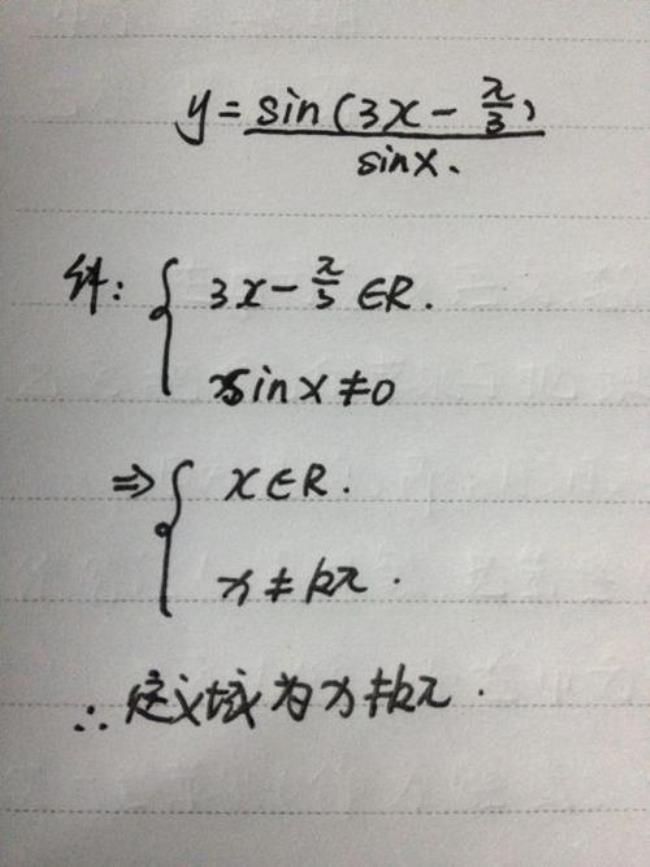 y = sin(3x - π/3) / sinx.
解: { 3x - π/3 ∈R.
sinx ≠ 0
⇒ { x∈R.
x ≠ kπ.
∴ 定义域为x≠kπ.